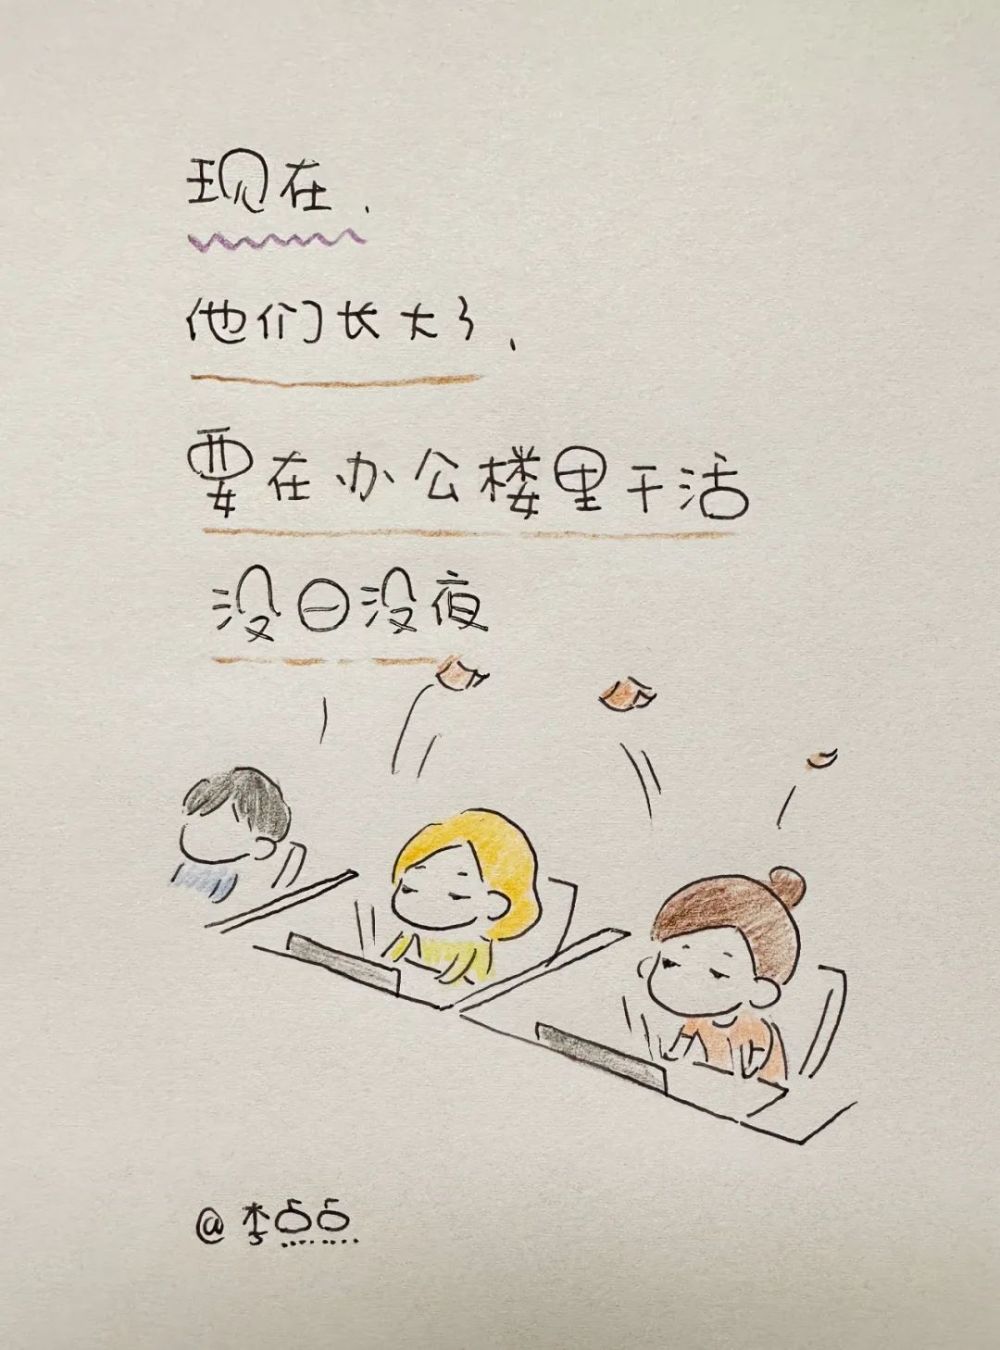 现在，
他们长大了，
要在办公楼里干活
没日没夜
@李